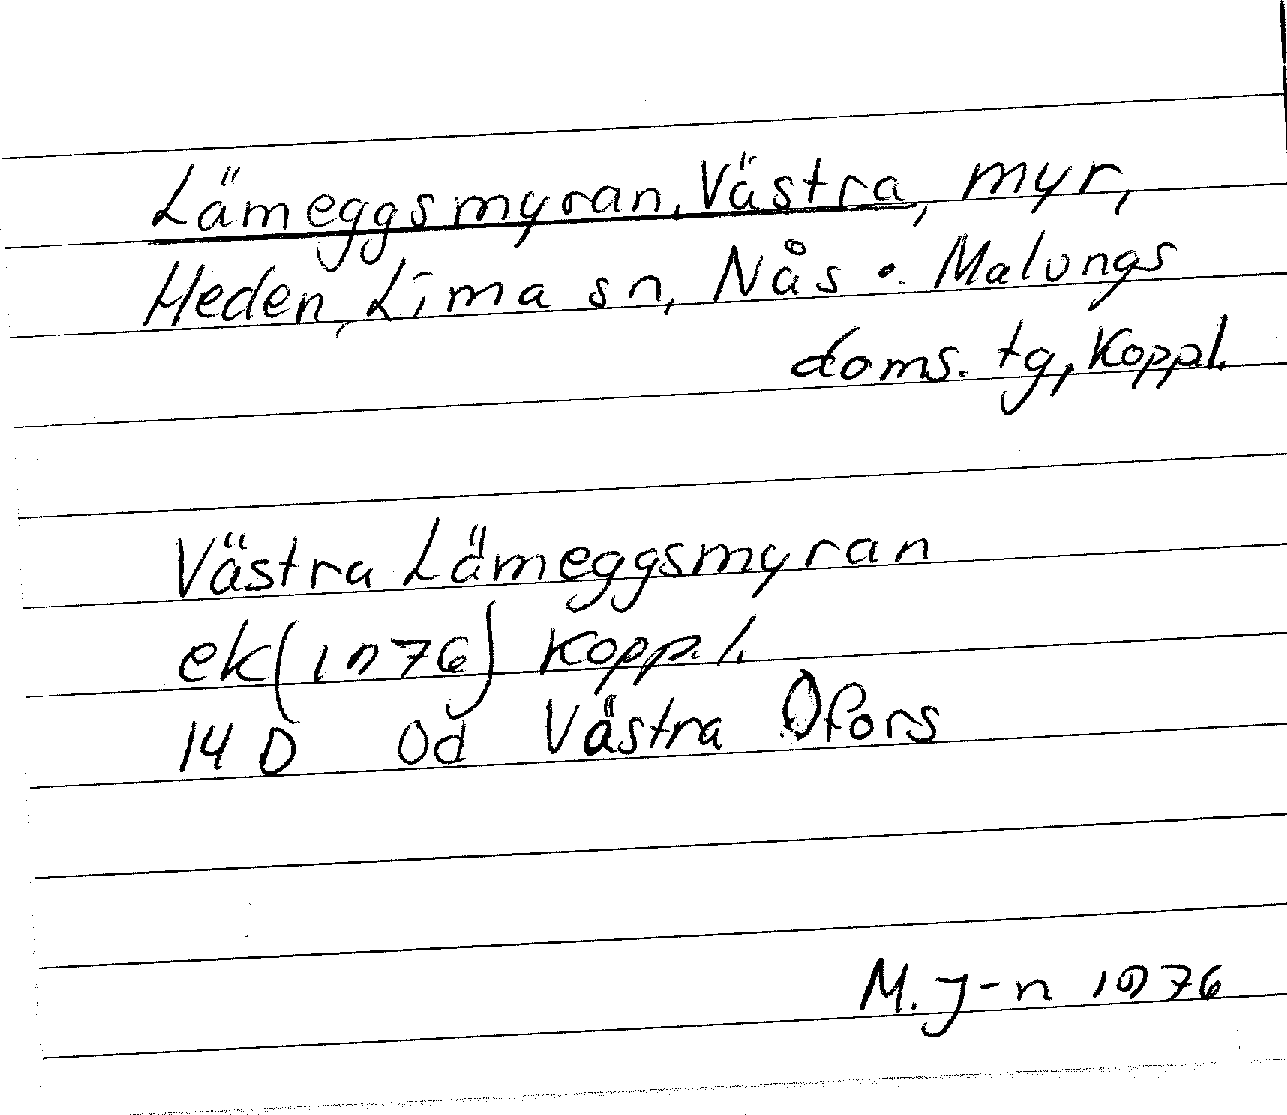 Lämeggsmyran, Västra, myr,
Heden, Lima sn, Nås o. Malungs
doms. tg, Koppl.
Västra Lämeggsmyran
ek (1976) Koppl.
14 D 0d Västra Ofors
M. J-n 1976